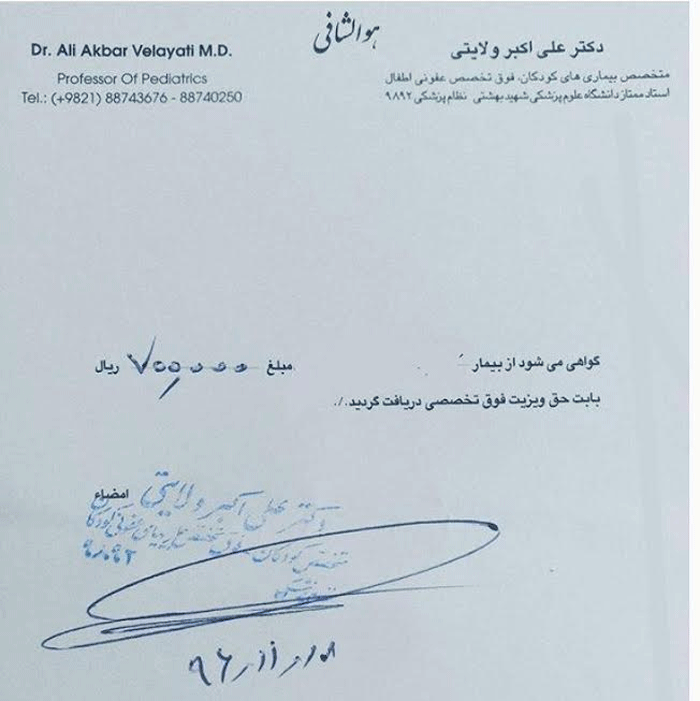 هوالشافی
دکتر علی اکبر ولایتی
متخصص بیماری های کودکان، فوق تخصص عفونی اطفال
استاد ممتاز دانشگاه علوم پزشکی شهید بهشتی نظام پزشکی ۹۸۹۲
Dr. Ali Akbar Velayati M.D.
Professor Of Pediatrics
Tel.: (+9821) 88743676 - 88740250
گواهی می شود از بیمار مبلغ ۷۰۰,۰۰۰ ریال
بابت حق ویزیت فوق تخصصی دریافت گردید./.
امضاء
دکتر علی اکبر ولایتی
متخصص کودکان فوق تخصص بیماریهای عفونی کودکان